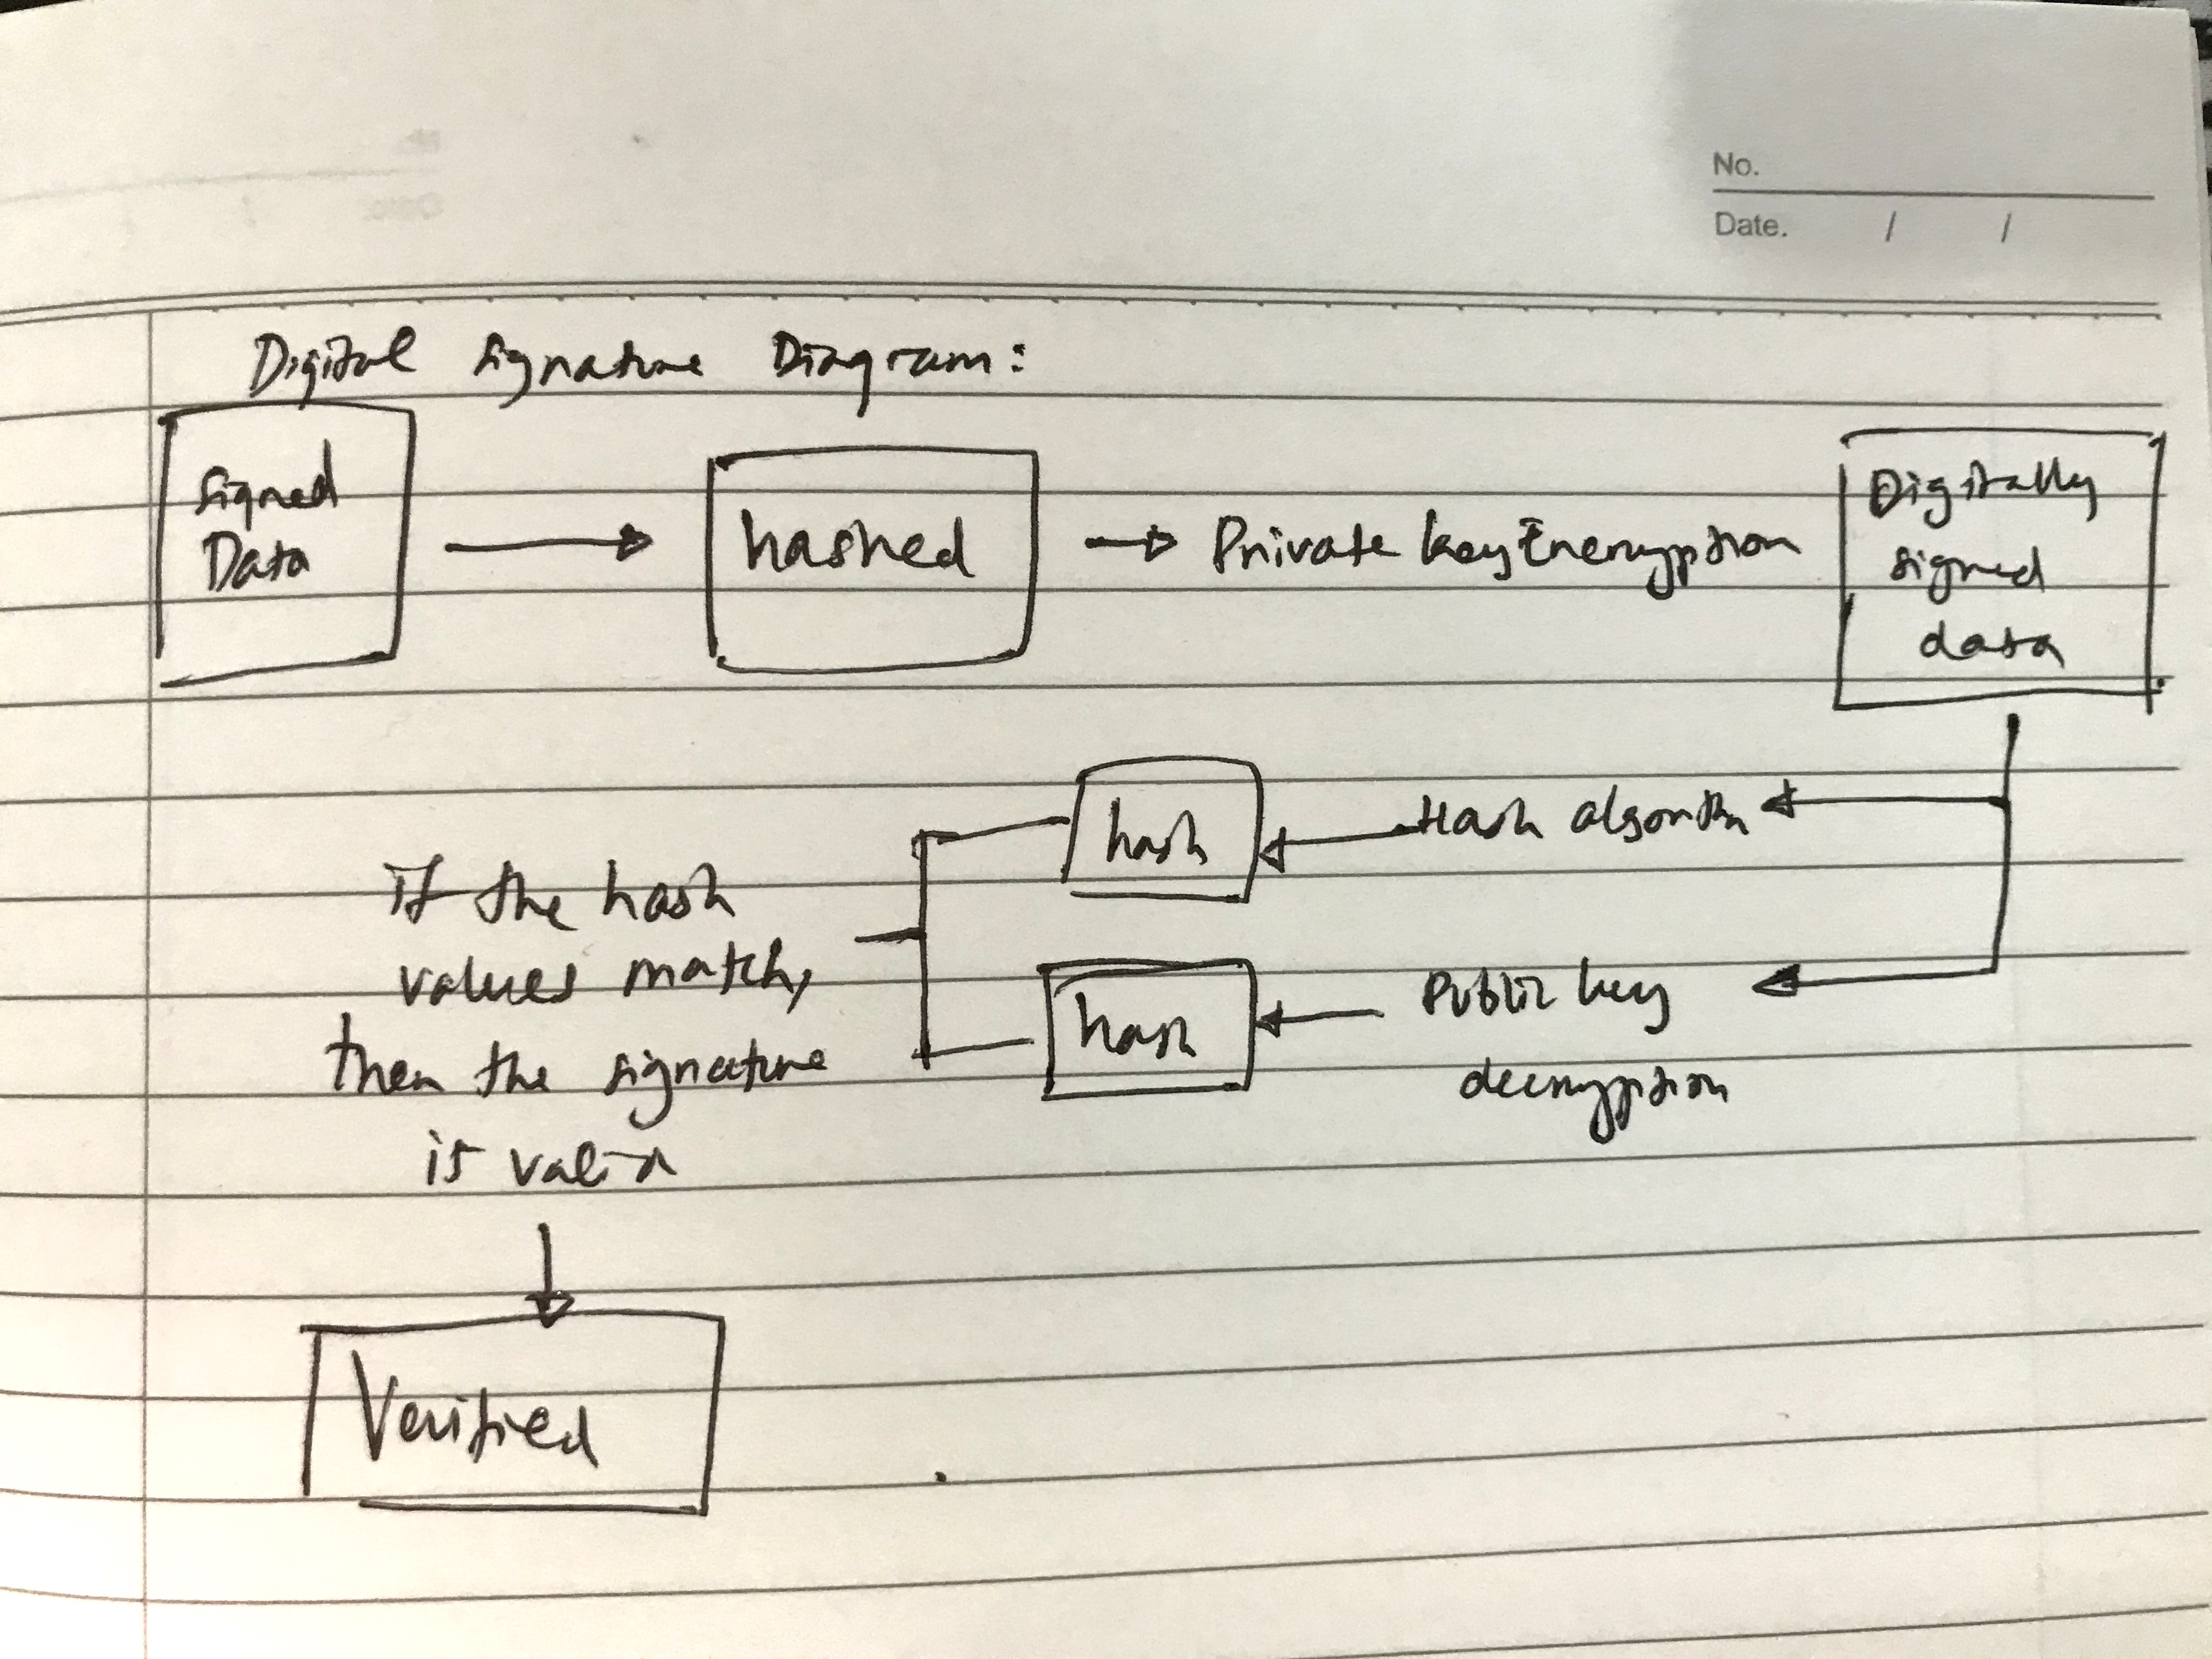 No.
Date. / /
Digital Signature Diagram:
Signed
Data
hashed
Private key Encryption
Digitally
signed
data
hash
Hash algorithm
hash
Public key
decryption
If the hash
values match,
then the signature
is valid
Verified